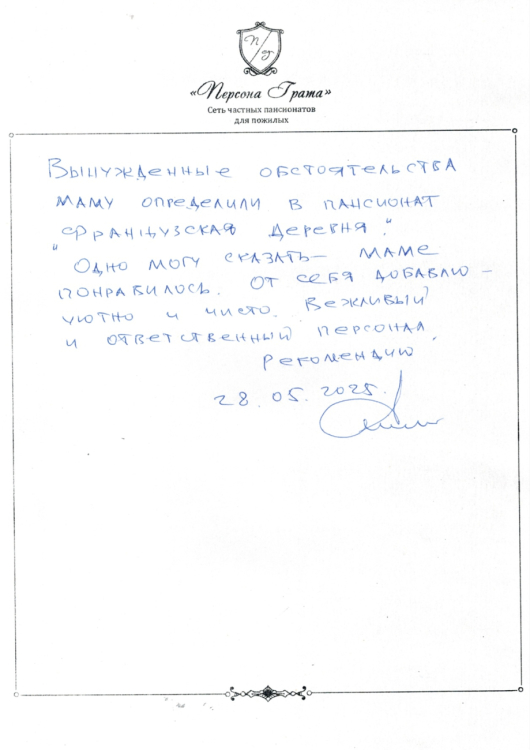 П/Г
«Персона Грата»
Сеть частных пансионатов
для пожилых
Вынужденные обстоятельства
маму определили в пансионат
"Французская Деревня."
Одно могу сказать – маме
понравилось. От себя добавлю –
уютно и чисто. Вежливый
и ответственный персонал.
Рекомендую.
28.05.2025.